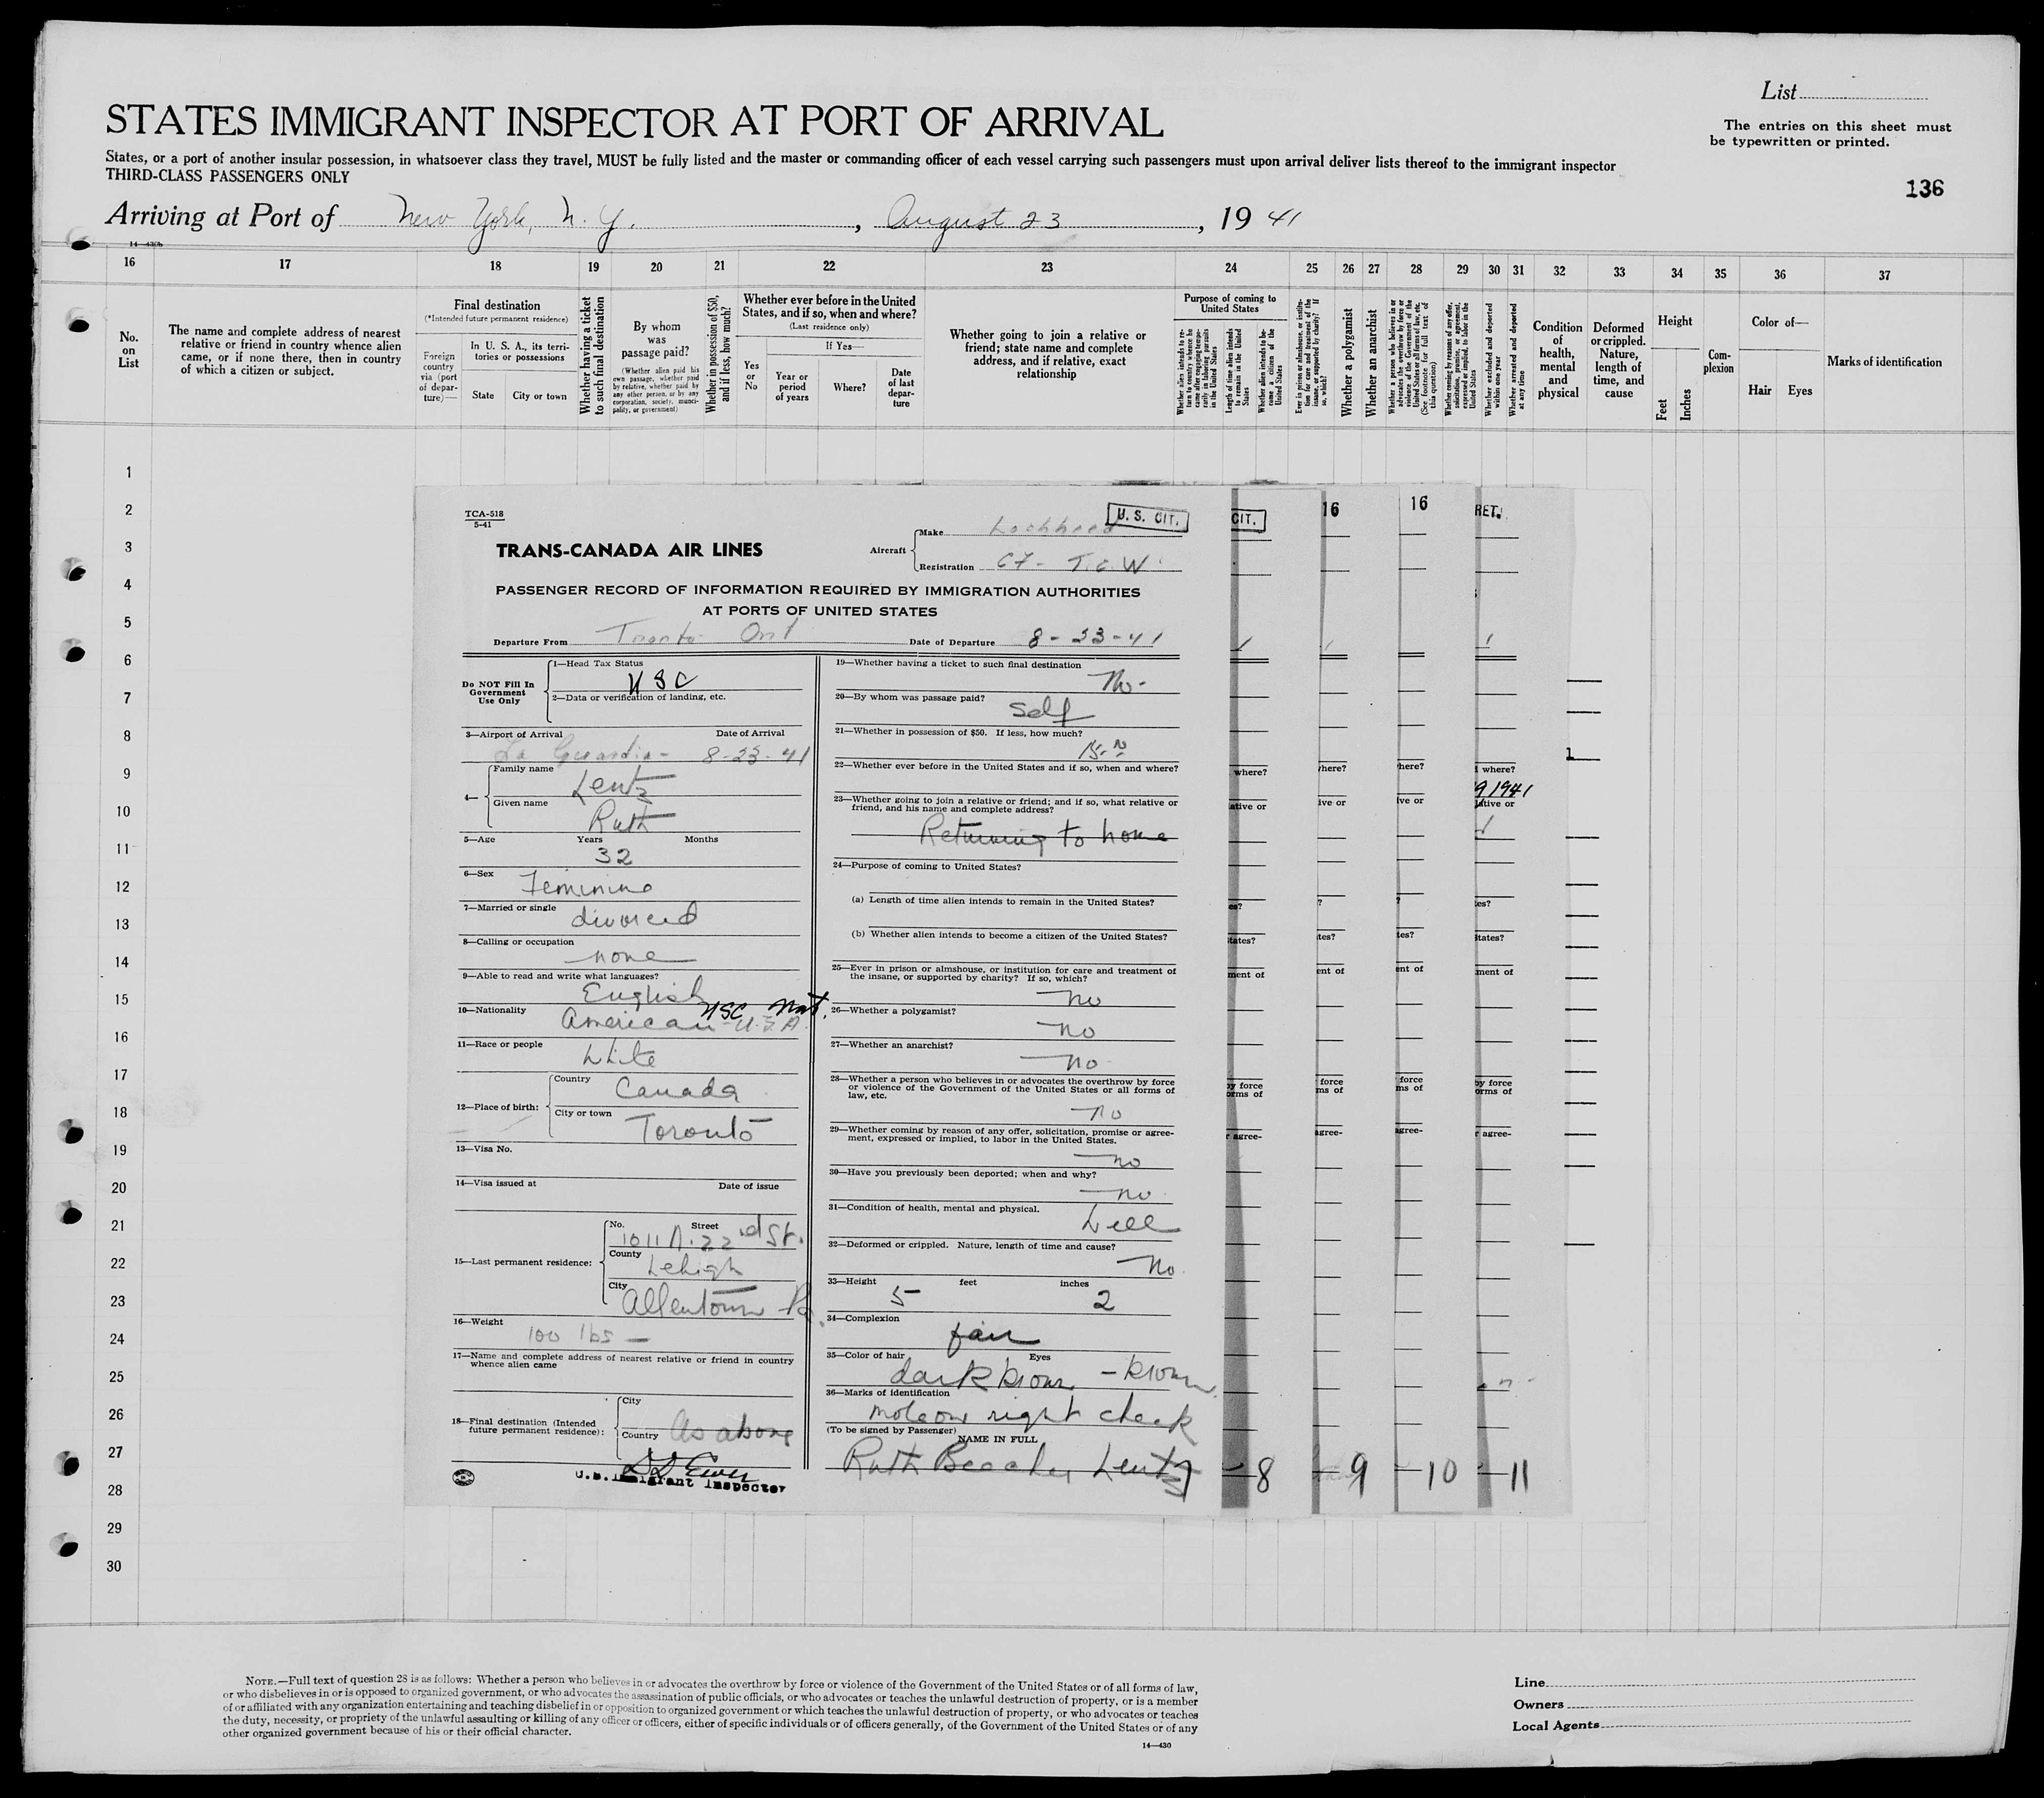 List
STATES IMMIGRANT INSPECTOR AT PORT OF ARRIVAL
The entries on this sheet must
be typewritten or printed.
States, or a port of another insular possession, in whatsoever class they travel, MUST be fully listed and the master or commanding officer of each vessel carrying such passengers must upon arrival deliver lists thereof to the immigrant inspector
THIRD-CLASS PASSENGERS ONLY
136
Arriving at Port of New York, N. Y. , August 23 , 19 41
14—430b
16 17 18 19 20 21 22 23 24 25 26 27 28 29 30 31 32 33 34 35 36 37
No.
on
List
The name and complete address of nearest
relative or friend in country whence alien
came, or if none there, then in country
of which a citizen or subject.
Final destination
(*Intended future permanent residence)
Foreign
country
via (port
of depar-
ture)—
In U. S. A., its terri-
tories or possessions
State City or town
Whether having a ticket
to such final destination
By whom
was
passage paid?
(Whether alien paid his
own passage, whether paid
by relative, whether paid by
any other person, or by any
corporation, society, munici-
pality, or government)
Whether in possession of $50,
and if less, how much?
Whether ever before in the United
States, and if so, when and where?
(Last residence only)
Yes
or
No
If Yes—
Year or
period
of years
Where?
Date
of last
depar-
ture
Whether going to join a relative or
friend; state name and complete
address, and if relative, exact
relationship
Purpose of coming to
United States
Whether alien intends to re-
turn to country whence he
came after engaging tempo-
rarily in laboring pursuits
in the United States
Length of time alien intends
to remain in the United
States
Whether alien intends to be-
come a citizen of the
United States
Ever in prison or almshouse, or institu-
tion for care and treatment of the
insane, or supported by charity? If
so, which?
Whether a polygamist
Whether an anarchist
Whether a person who believes in or
advocates the overthrow by force or
violence of the Government of the
United States or all forms of law, etc.
(See footnote for full text of
this question)
Whether coming by reasons of any offer,
solicitation, promise, or agreement,
expressed or implied, to labor in the
United States
Whether excluded and deported
within one year
Whether arrested and deported
at any time
Condition
of
health,
mental
and
physical
Deformed
or crippled.
Nature,
length of
time, and
cause
Height
Feet
Inches
Com-
plexion
Color of—
Hair Eyes
Marks of identification
1
2
3
4
5
6
7
8
9
10
11
12
13
14
15
16
17
18
19
20
21
22
23
24
25
26
27
28
29
30
TCA-518
5-41
U. S. CIT.
TRANS-CANADA AIR LINES
Aircraft
Make Lockheed
Registration CF- T.C.W.
PASSENGER RECORD OF INFORMATION REQUIRED BY IMMIGRATION AUTHORITIES
AT PORTS OF UNITED STATES
Departure From Toronto Ont Date of Departure 8-23-41
Do NOT Fill In
Government
Use Only
1—Head Tax Status
USC
2—Data or verification of landing, etc.
3—Airport of Arrival Date of Arrival
La Guardia- 8-23-41
4—
Family name
Lentz
Given name
Ruth
5—Age Years Months
32
6—Sex
Feminine
7—Married or single
divorced
8—Calling or occupation
none
9—Able to read and write what languages?
English
USC Nat.
10—Nationality
American - U.S.A.
11—Race or people
White
12—Place of birth:
Country
Canada
City or town
Toronto
13—Visa No.
14—Visa issued at Date of issue
15—Last permanent residence:
No. Street
1011 N. 22nd St.
County
Lehigh
City
Allentown Pa.
16—Weight
100 lbs —
17—Name and complete address of nearest relative or friend in country
whence alien came
18—Final destination (Intended
future permanent residence):
City
Country As above
U.S. Immigrant Inspector
19—Whether having a ticket to such final destination
No-
20—By whom was passage paid?
Self
21—Whether in possession of $50. If less, how much?
22—Whether ever before in the United States and if so, when and where?
23—Whether going to join a relative or friend; and if so, what relative or
friend, and his name and complete address?
Returning to home
24—Purpose of coming to United States?
(a) Length of time alien intends to remain in the United States?
(b) Whether alien intends to become a citizen of the United States?
25—Ever in prison or almshouse, or institution for care and treatment of
the insane, or supported by charity? If so, which?
no
26—Whether a polygamist?
no
27—Whether an anarchist?
no
28—Whether a person who believes in or advocates the overthrow by force
or violence of the Government of the United States or all forms of
law, etc.
no
29—Whether coming by reason of any offer, solicitation, promise or agree-
ment, expressed or implied, to labor in the United States.
no
30—Have you previously been deported; when and why?
no
31—Condition of health, mental and physical.
Well
32—Deformed or crippled. Nature, length of time and cause?
No
33—Height feet inches
5 2
34—Complexion
fair
35—Color of hair Eyes
dark brown - brown
36—Marks of identification
mole on right cheek
(To be signed by Passenger)
NAME IN FULL
Ruth Lentz
7
CIT.
where?
ative or
es?
tates?
ment of
by force
orms of
r agree-
8
16
here?
ive or
?
tes?
ent of
force
ms of
agree-
9
16
here?
ive or
?
tes?
ent of
force
ms of
agree-
10
RET.
where?
9 1941
lative or
tes?
States?
ment of
by force
orms of
r agree-
11
NOTE.—Full text of question 28 is as follows: Whether a person who believes in or advocates the overthrow by force or violence of the Government of the United States or of all forms of law,
or who disbelieves in or is opposed to organized government, or who advocates the assassination of public officials, or who advocates or teaches the unlawful destruction of property, or is a member
of or affiliated with any organization entertaining and teaching disbelief in or opposition to organized government or which teaches the unlawful destruction of property, or who advocates or teaches
the duty, necessity, or propriety of the unlawful assaulting or killing of any officer or officers, either of specific individuals or of officers generally, of the Government of the United States or of any
other organized government because of his or their official character.
14—430
Line
Owners
Local Agents